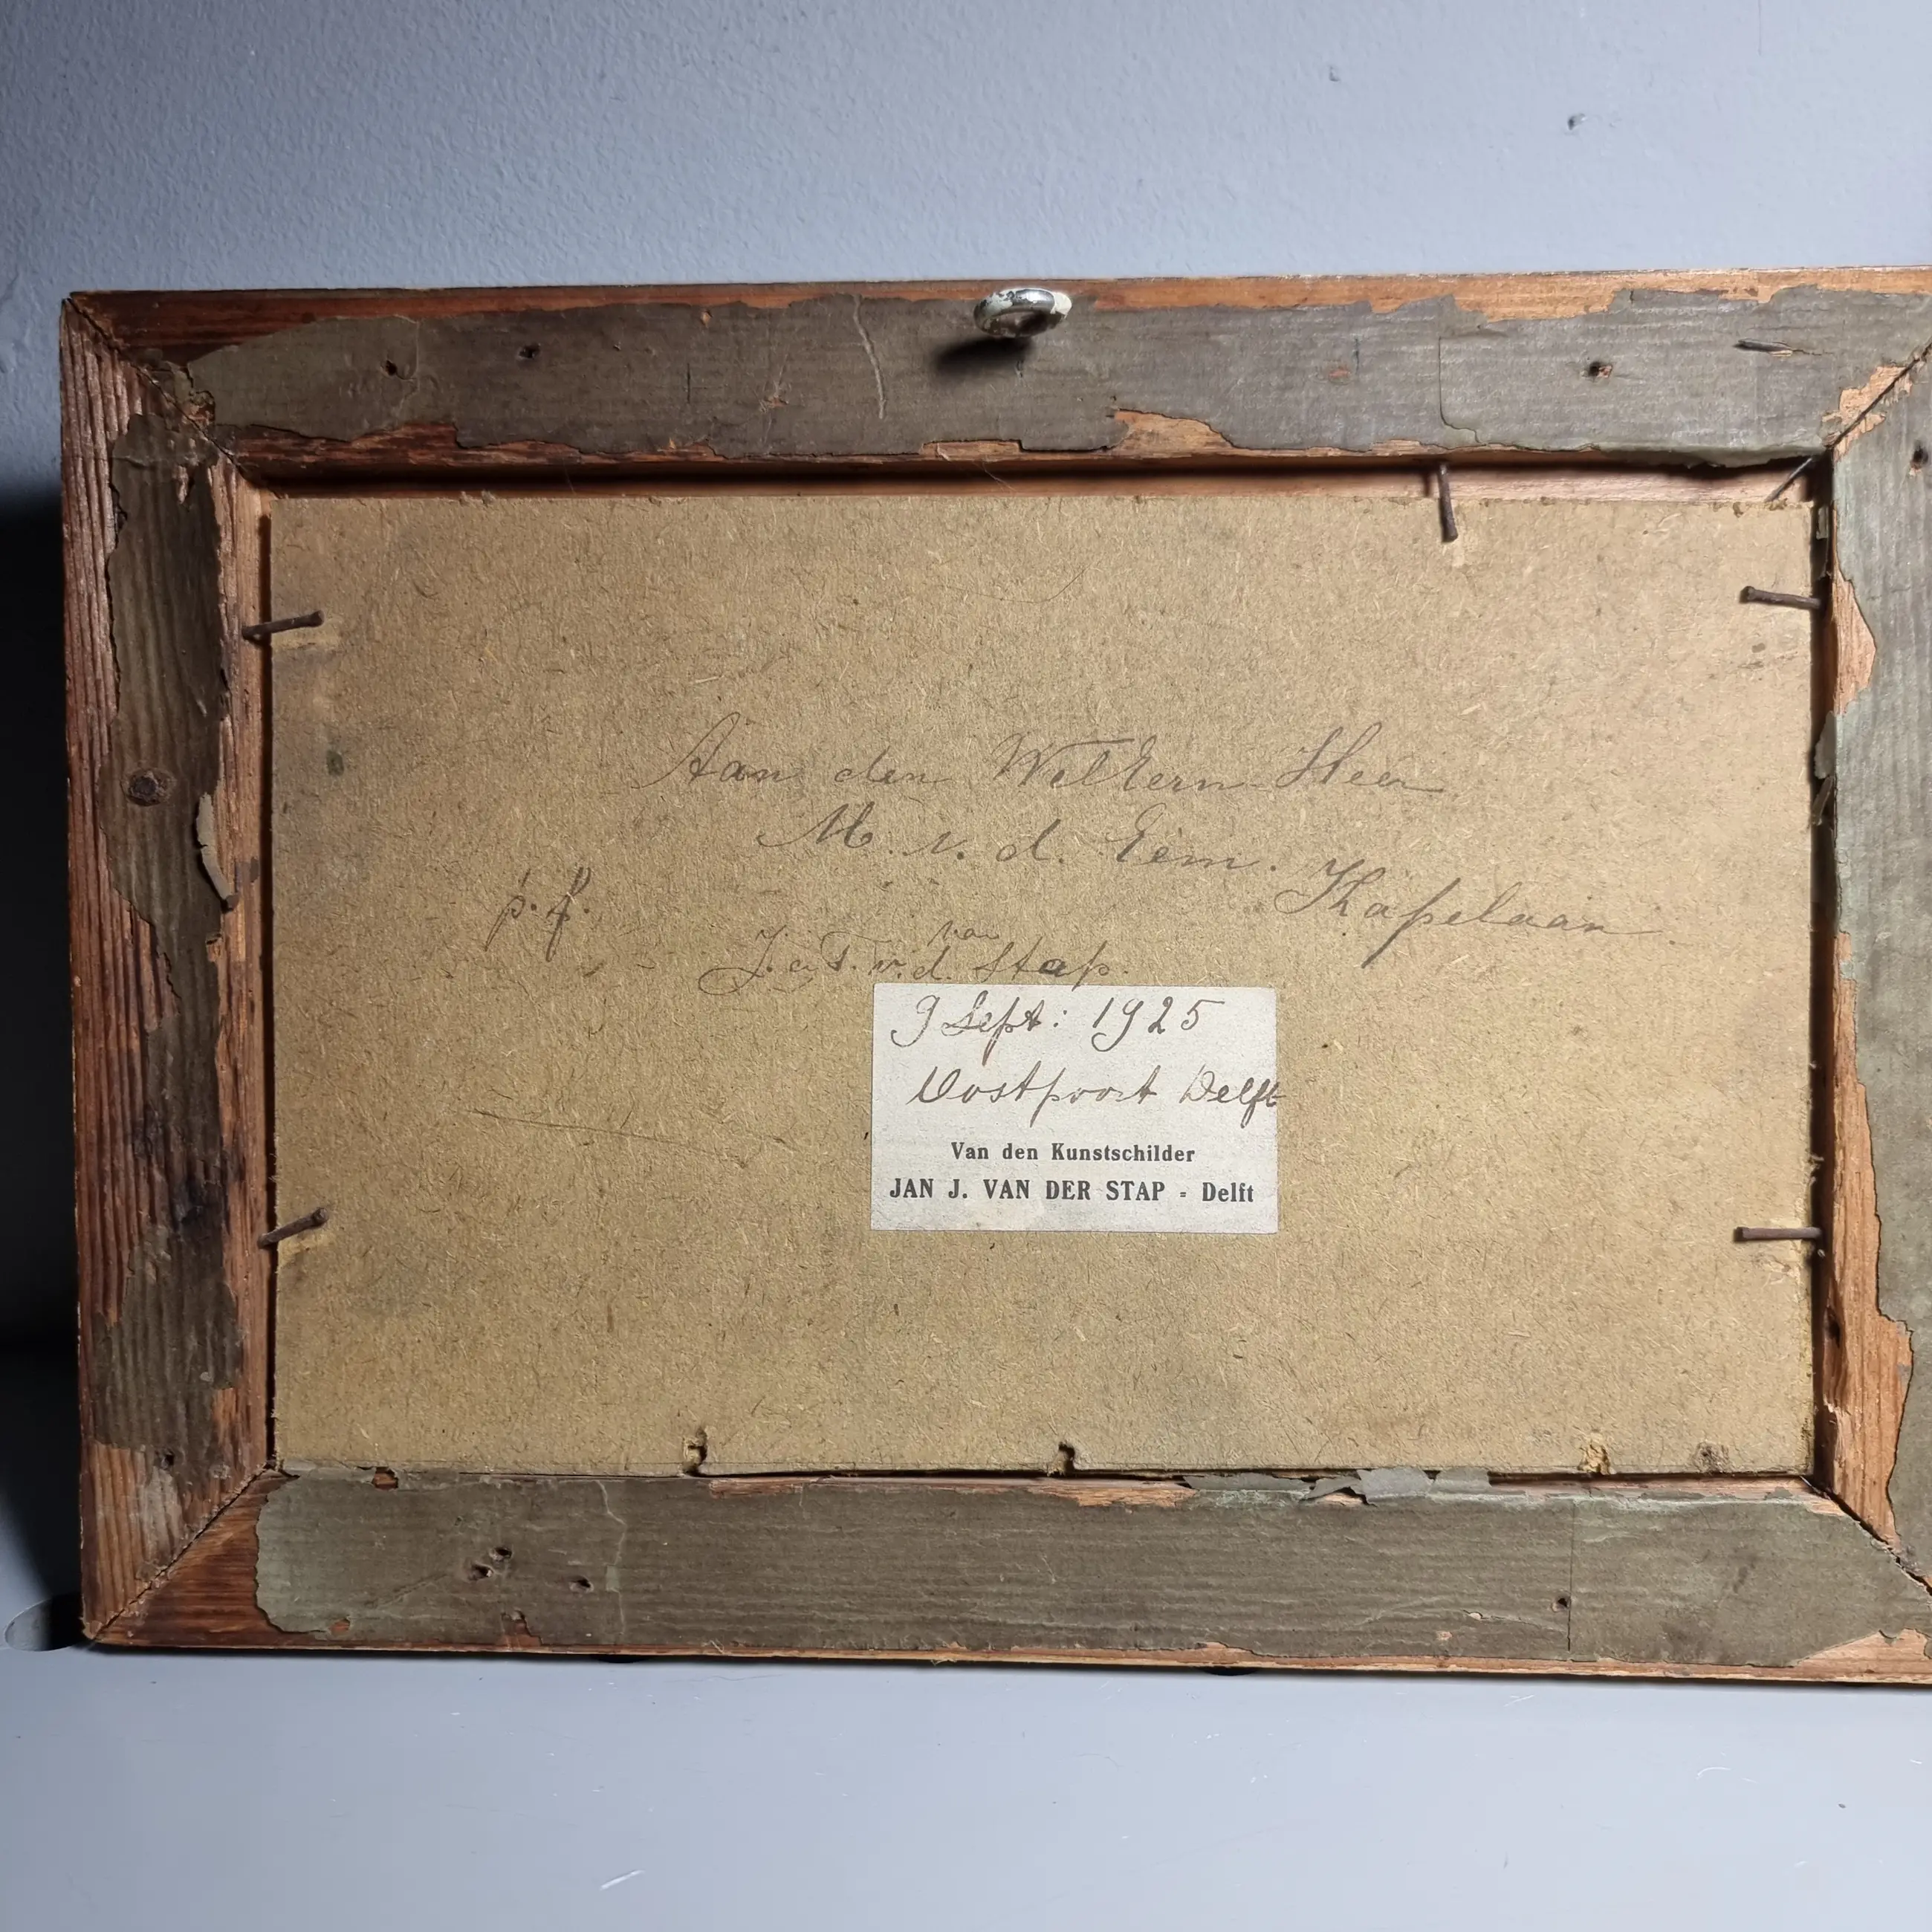 Aan den WelEerw. Heer
M. v. d. Eem.
Kapelaan
p. f.
van
J. a T. v. d. Stap.
9 Sept: 1925
Oostpoort Delft
Van den Kunstschilder
JAN J. VAN DER STAP - Delft